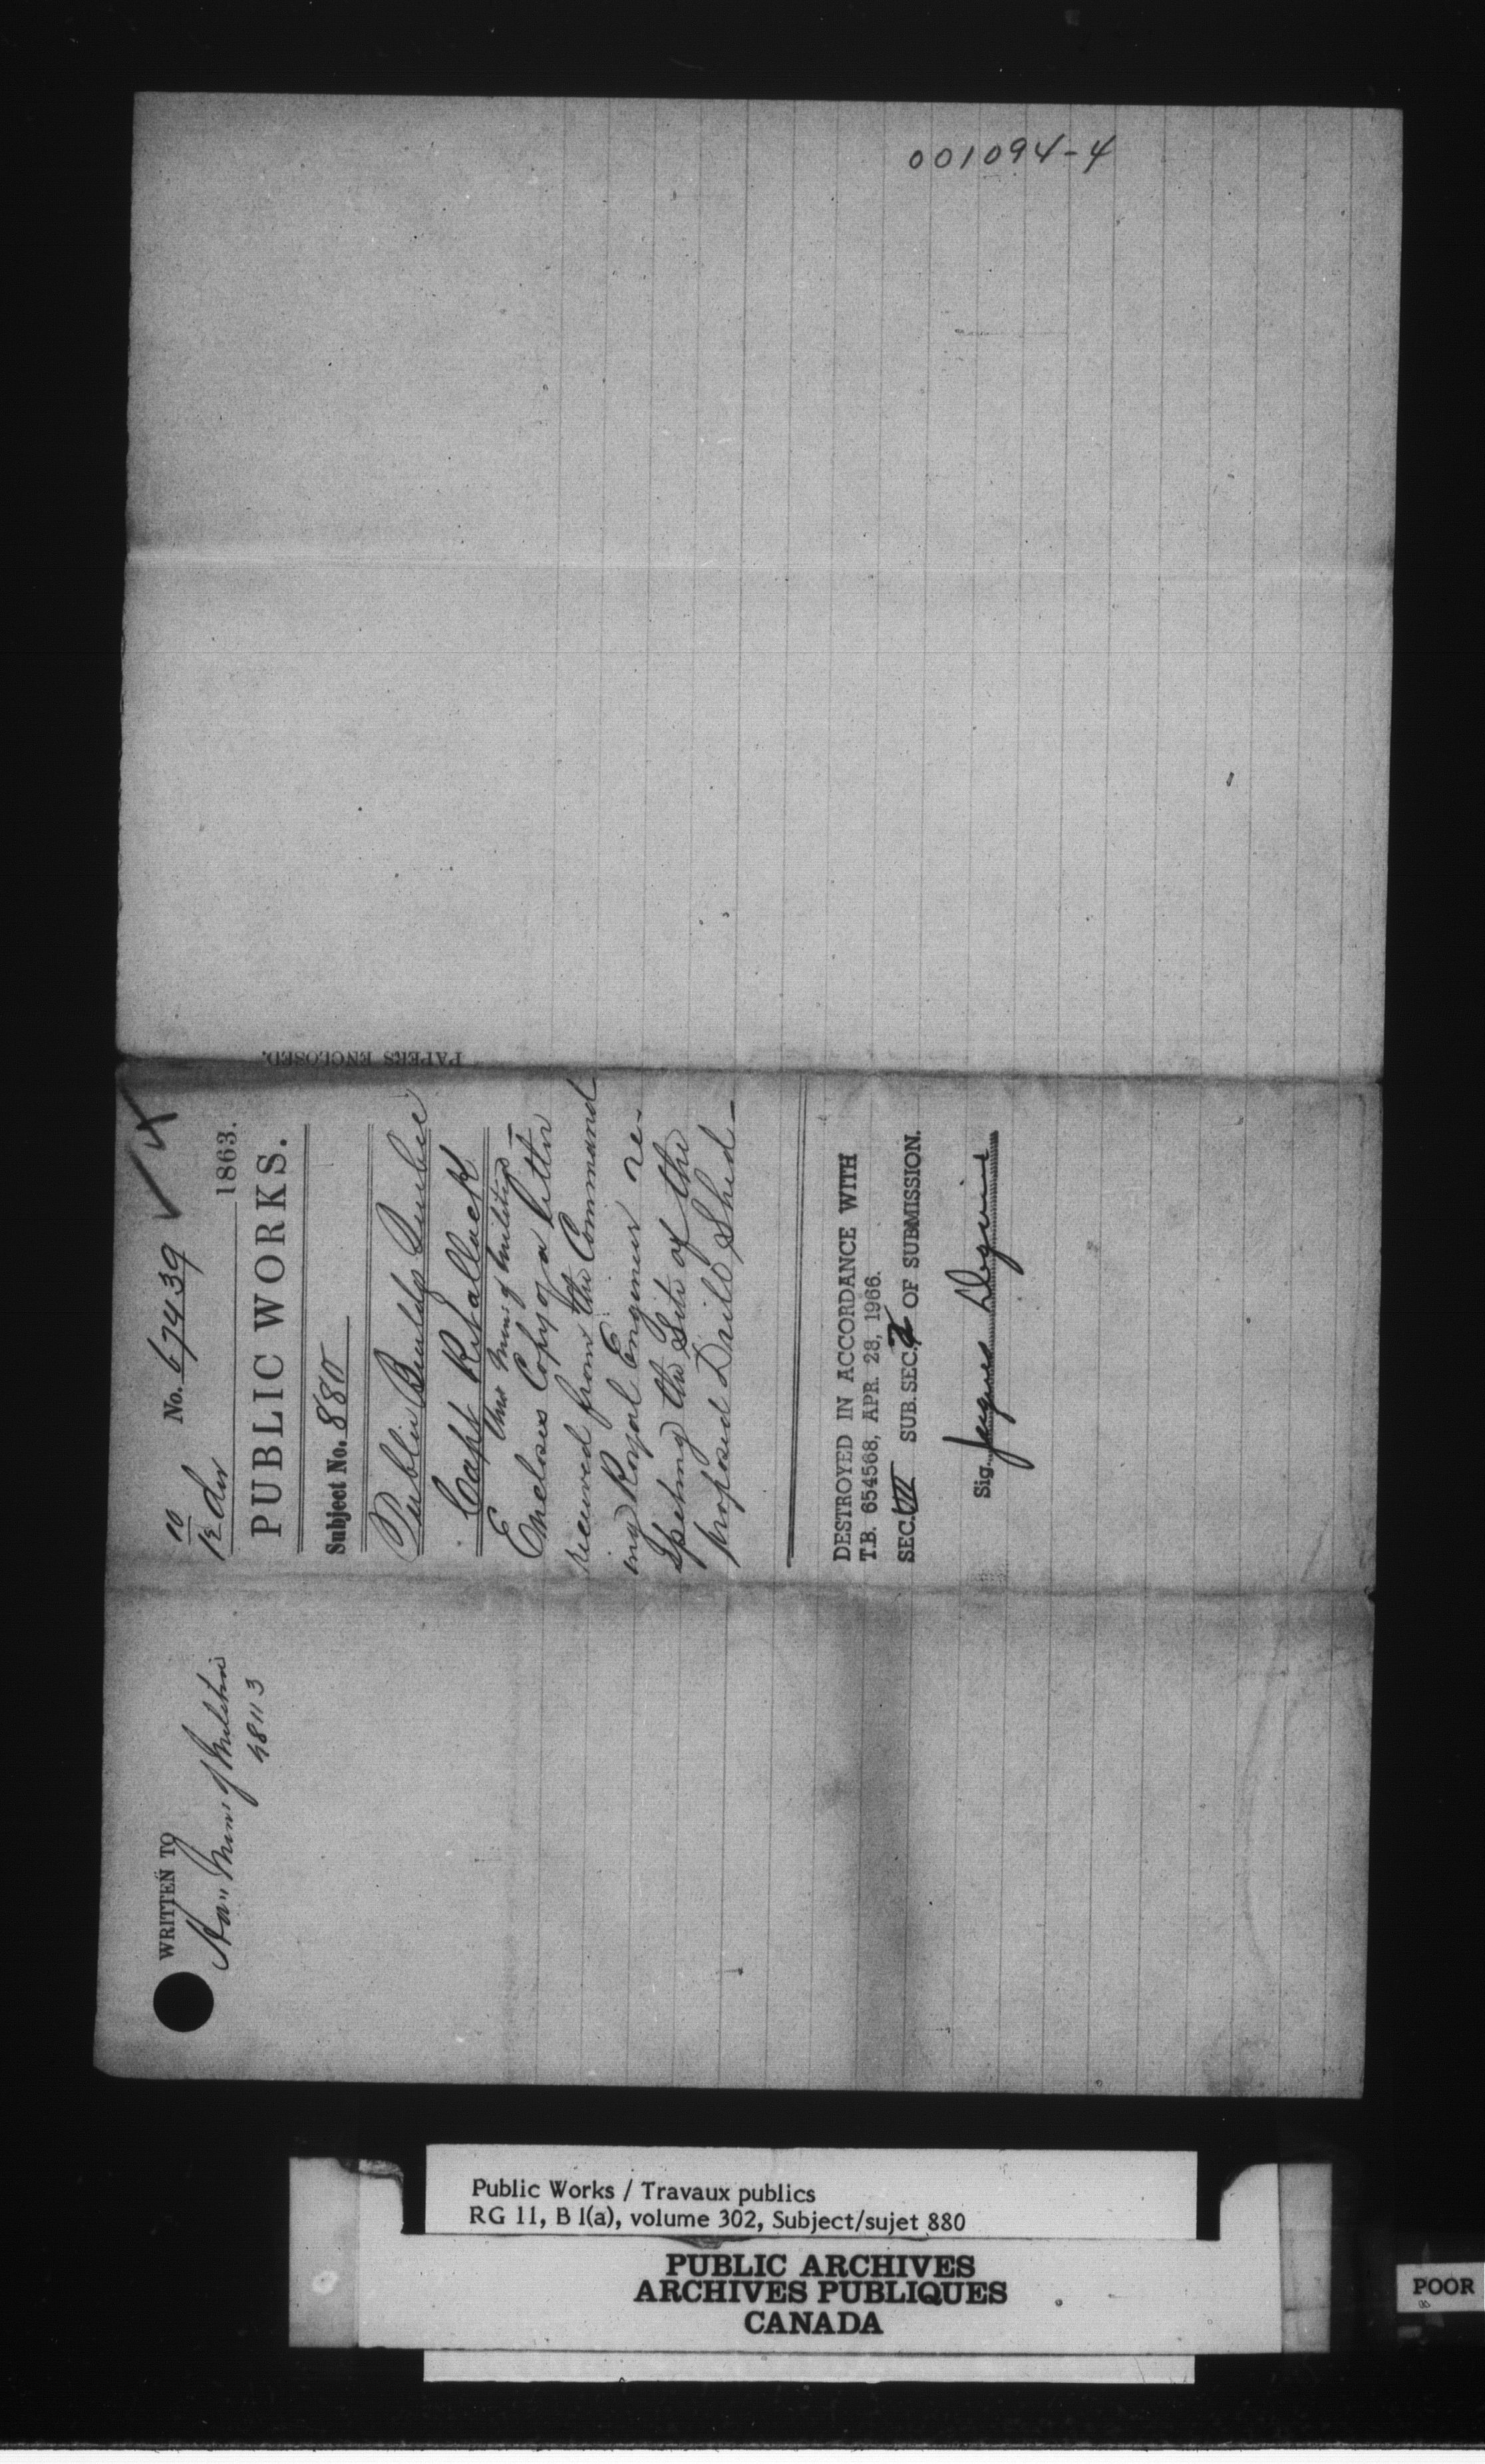 001094-4
WRITTEN TO
Hon Minr of Militia
48113
10
12 Dec
No. 67439
1863.
PUBLIC WORKS.
Subject No. 880
Public Buildgs Quebec
Capt Retallack
thro Minr of Militia
Encloses Copy of a letter
received from the Command
ing Royal Engineer re-
specting the Site of the
proposed Drill Shed—
DESTROYED IN ACCORDANCE WITH
T.B. 654568, APR. 28, 1966.
SEC. VII SUB. SEC. OF SUBMISSION.
Sig. Jacques
PAPERS ENCLOSED.
Public Works / Travaux publics
RG 11, B 1(a), volume 302, Subject/sujet 880
PUBLIC ARCHIVES
ARCHIVES PUBLIQUES
CANADA
POOR